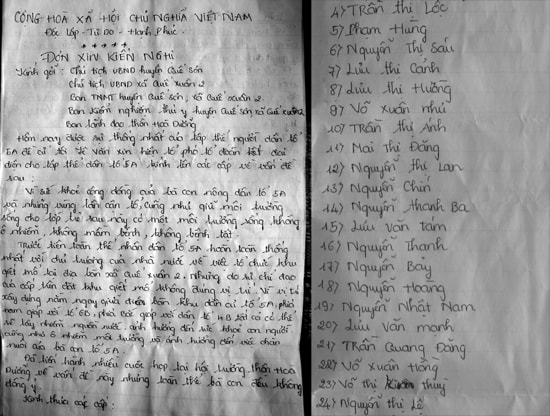 CÔNG HOÀ XÃ HỘI CHỦ NGHĨA VIỆT NAM
Độc Lập - Tự Do - Hạnh Phúc
ĐƠN XIN KIẾN NGHỊ
Kính gởi: Chủ tịch UBND huyện Quế Sơn
Chủ tịch UBND xã Quế Xuân 2
Ban TNMT huyện Quế Sơn, xã Quế Xuân 2
Ban kiểm nghiệm thú y huyện Quế Sơn xã Quế Xuân 2
Ban lãnh đạo thôn Hoà Dương
Hôm nay được sự thống nhất của tập thể người dân tổ
5A đề cử tôi Lê Văn Xin hiện tổ phó tổ đoàn kết đại
diện cho tập thể dân tổ 5A kính lên các cấp về vấn đề
sau:
Vì sức khoẻ cộng đồng của bà con nông dân tổ 5A
và những vùng lân cận tổ, cũng như giữ môi trường
sống cho lớp trẻ sau này có một môi trường sống không
ô nhiễm, không mầm bệnh, không bệnh tật.
Trước tiên toàn thể nhân dân tổ 5A hoàn toàn thống
nhất với chủ trương của nhà nước về việc tổ chức khu
giết mổ tại địa bàn xã Quế Xuân 2. Nhưng do sự chỉ đạo
của cấp trên đặt khu giết mổ không đúng vị trí. Vì vị trí
xây dựng nằm ngay giữa điểm bàn khu dân cư tổ 5A, phía
nam giáp với tổ 6B, phía Bắc giáp với dân tổ 4B tất cả có thể
về lây nhiễm nguồn nước, ảnh hưởng đến sức khoẻ con người
cũng như ô nhiễm môi trường và ảnh hưởng đến việc chăn
nuôi của bà con tổ 5A.
Đã tiến hành nhiều cuộc họp tại hội trường thôn Hoà
Dương về vấn đề này nhưng toàn thể bà con đều không
đồng ý.
Kính thưa các cấp:
4) Trần Thị Lộc
5) Phạm Hùng
6) Nguyễn Thị Sáu
7) Lưu thị Cảnh
8) Lưu thị Hường
9) Võ xuân nhứ
10) Trần thị Ánh
11) Mai Thị Đăng
12) Nguyễn thị Lan
13) Nguyễn Chín
14) Nguyễn thanh Ba
15) Lưu văn tám
16) Nguyễn Thanh
17) Nguyễn Bảy
18) Nguyễn Hoàng
19) Nguyễn Nhất Nam
20) Lưu Văn mạnh
21) Trần Quang Đăng
22) Võ Xuân Hồng
23) Võ thị thuỷ
24) Nguyễn thị Lê